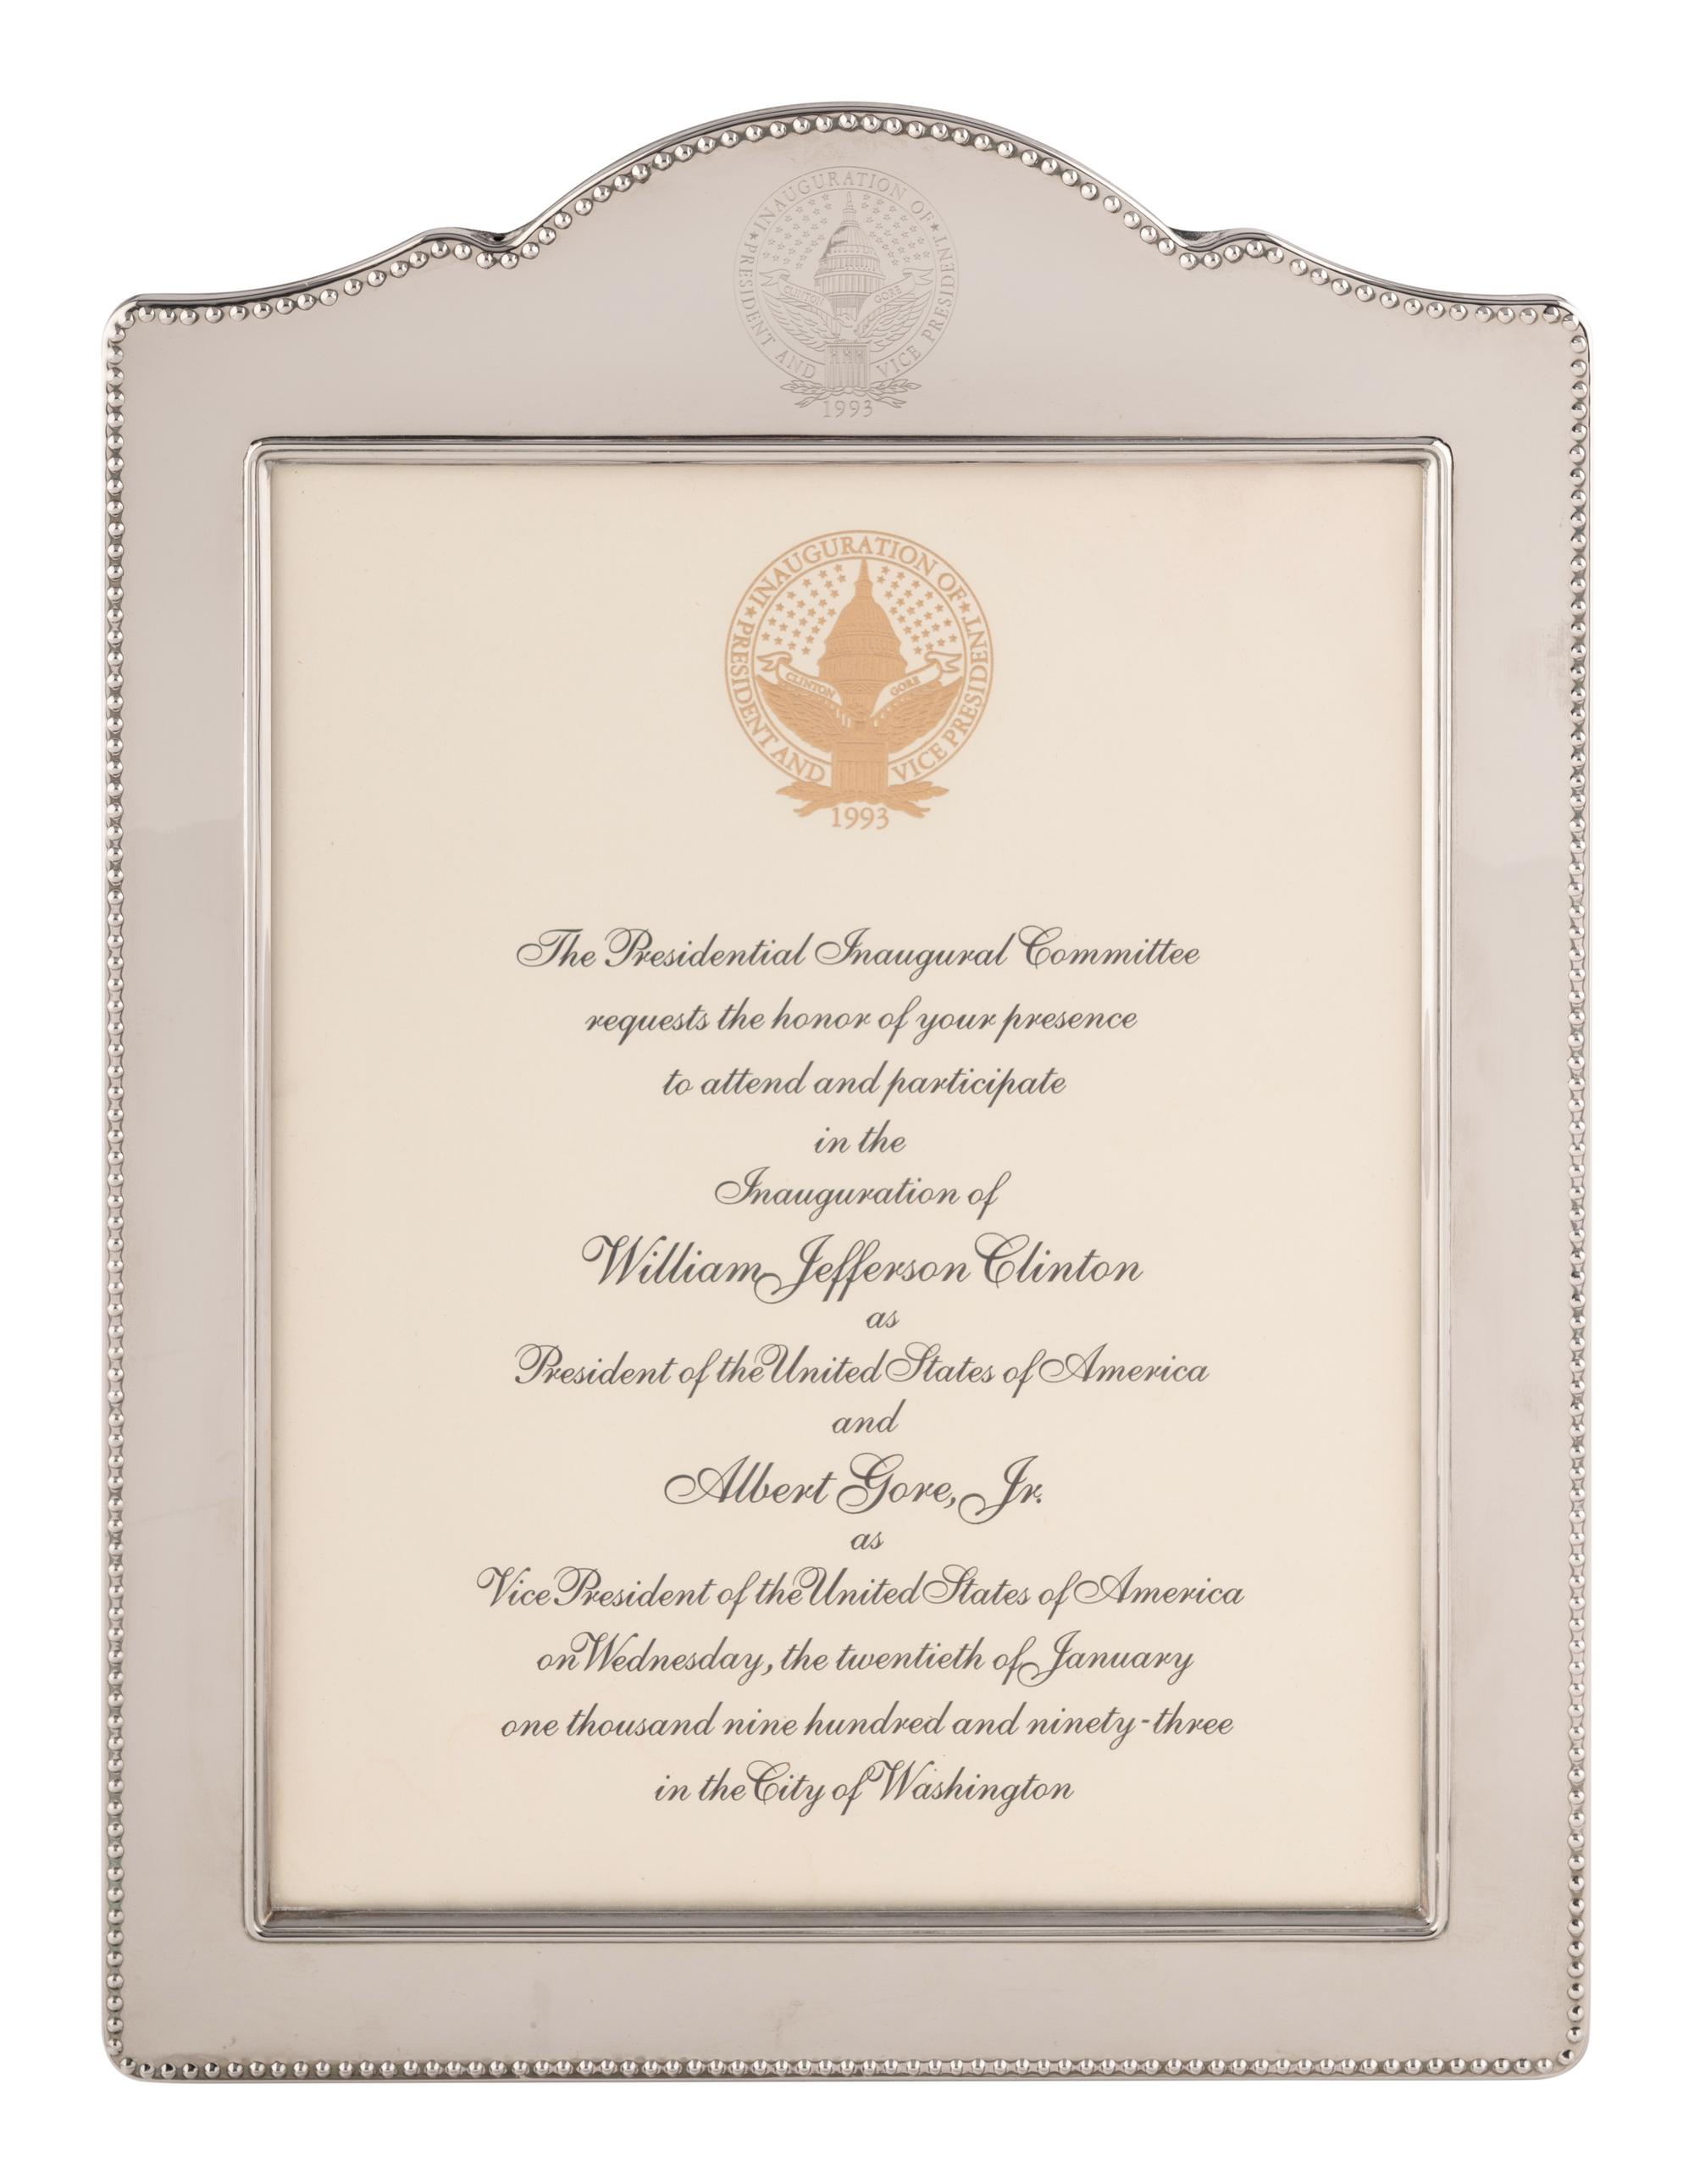 ★ INAUGURATION OF ★
PRESIDENT AND VICE PRESIDENT
CLINTON GORE
1993
★ INAUGURATION OF ★
PRESIDENT AND VICE PRESIDENT
CLINTON GORE
1993
The Presidential Inaugural Committee
requests the honor of your presence
to attend and participate
in the
Inauguration of
William Jefferson Clinton
as
President of the United States of America
and
Albert Gore, Jr.
as
Vice President of the United States of America
on Wednesday, the twentieth of January
one thousand nine hundred and ninety-three
in the City of Washington